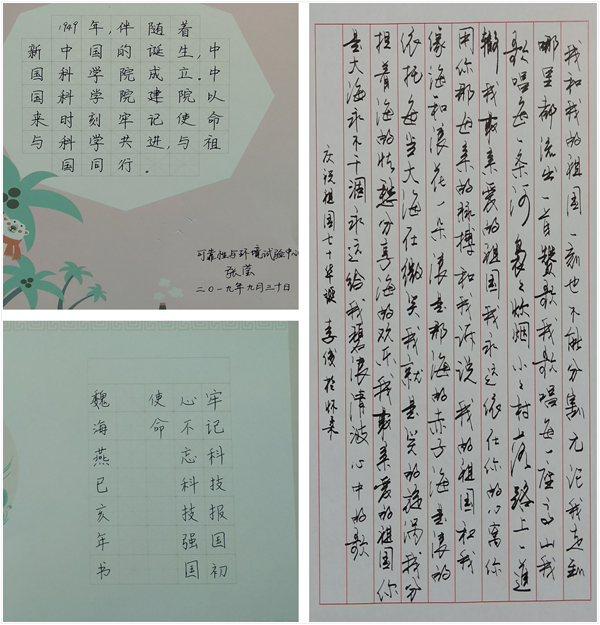 1949年,伴随着
新中国的诞生,中
国科学院成立.中
国科学院建院以
来时刻牢记使命
与科学共进,与祖
国同行.
可靠性与环境试验中心
张莹
二〇一九年九月三十日
牢记科技报国初
心不忘科技强国
使命
魏海燕已亥年书
我和我的祖国一刻也不能分割无论我走到
哪里都流出一首赞歌我歌唱每一座高山我
歌唱每一条河 袅々炊烟小々村落路上一道
辙 我最亲爱的祖国我永远依在你的心窝你
用你那母亲的脉搏和我诉说 我的祖国和我
像海和浪花一朵浪是那海的赤子海是浪的
依托每当大海在微笑我就是笑的旋涡我分
担着海的忧愁分享海的欢乐我最亲爱的祖国你
是大海永不干涸永远给我碧浪清波 心中的歌
庆祝祖国七十华诞 李 於怀柔